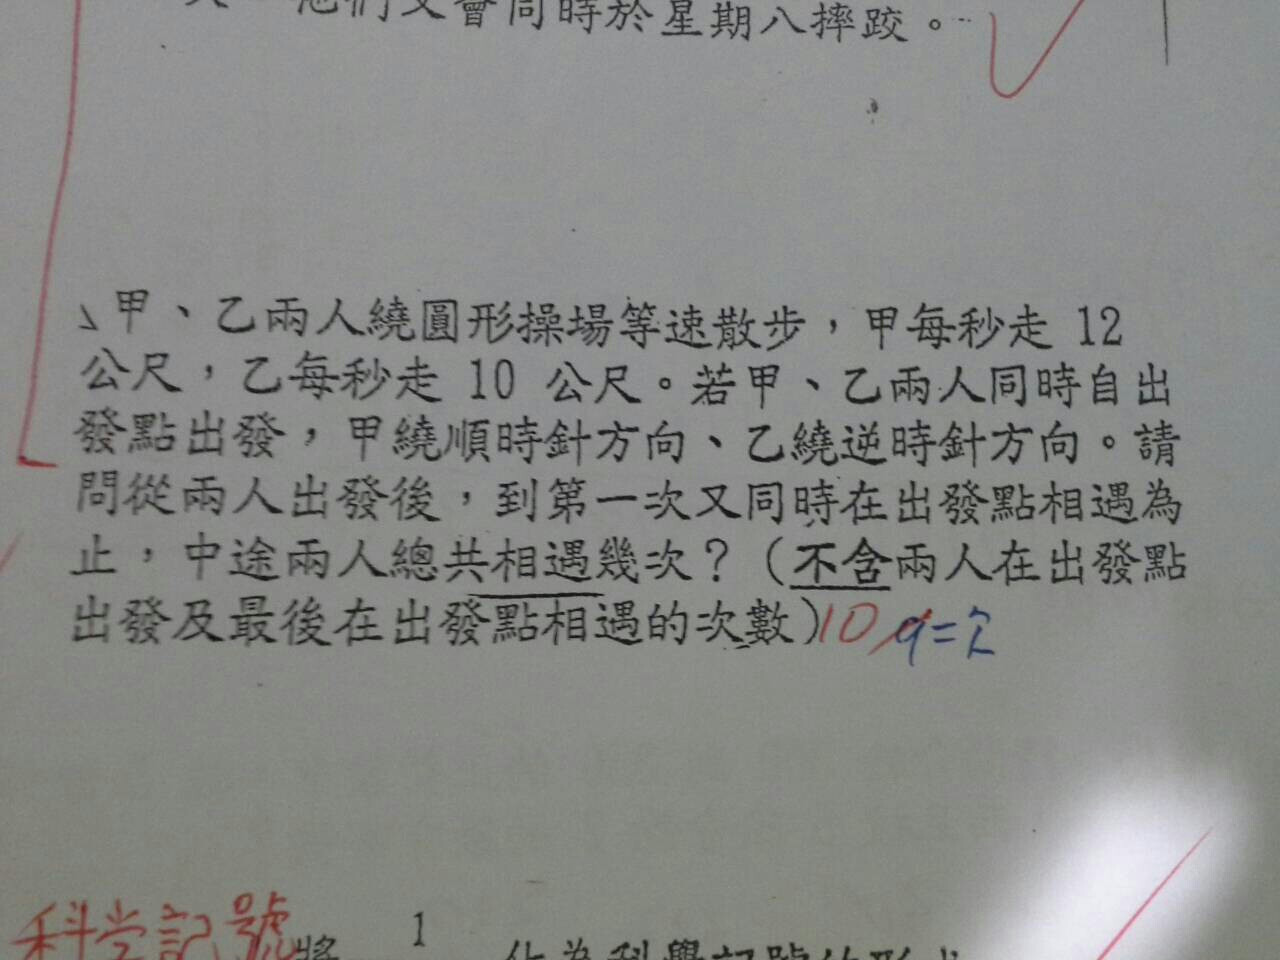 他們又會同時於星期八摔跤。
、甲、乙兩人繞圓形操場等速散步，甲每秒走 12
公尺，乙每秒走 10 公尺。若甲、乙兩人同時自出
發點出發，甲繞順時針方向、乙繞逆時針方向。請
問從兩人出發後，到第一次又同時在出發點相遇為
止，中途兩人總共相遇幾次？（不含兩人在出發點
出發及最後在出發點相遇的次數）10
科学記號 將 1 化為科學記號的形式